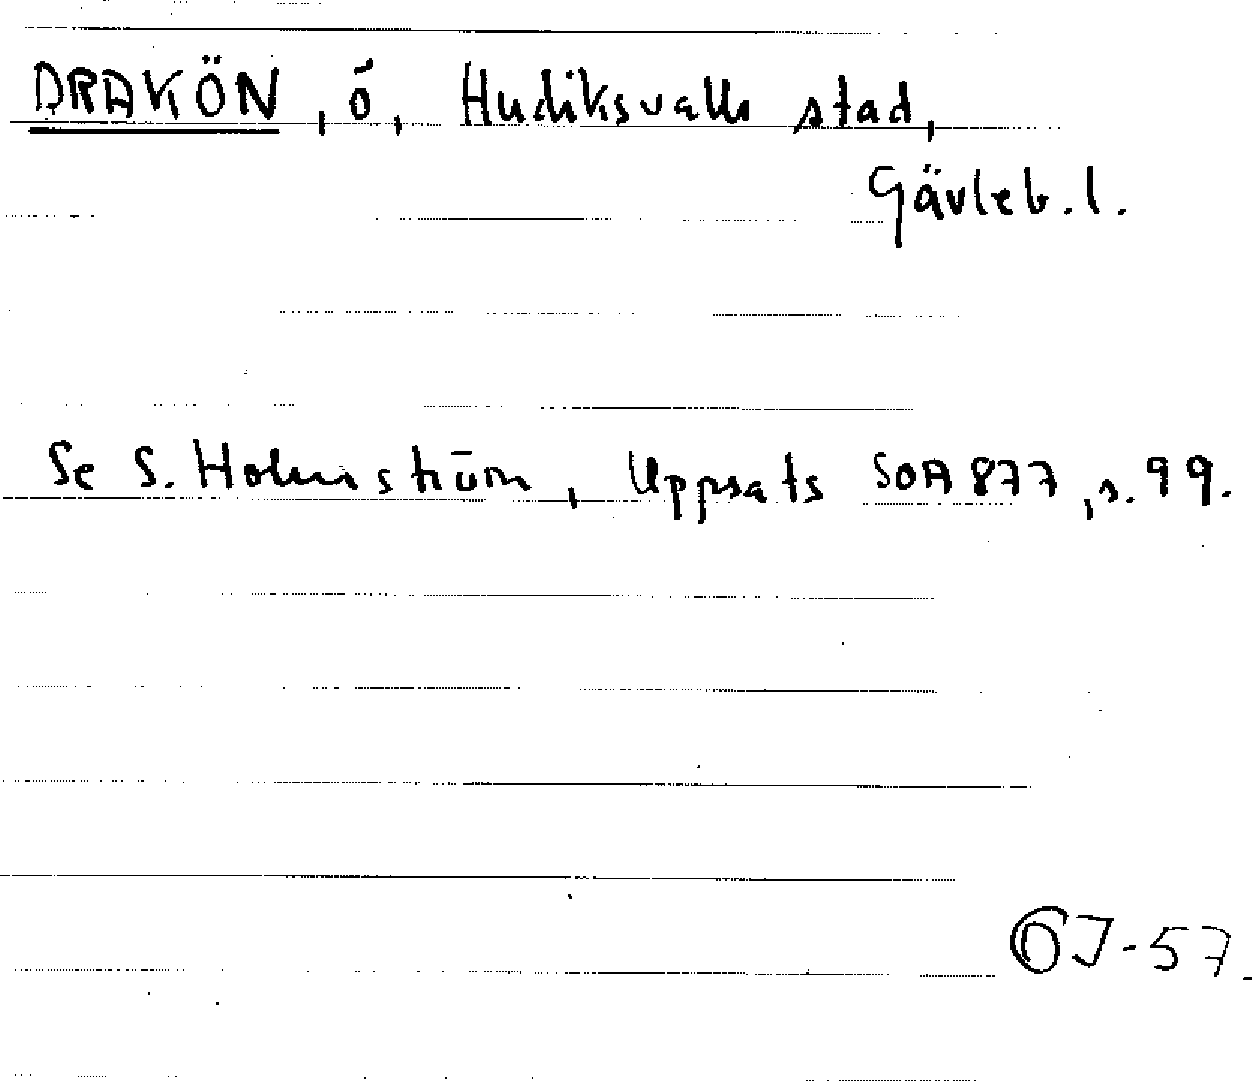 DRAKÖN, ö, Hudiksvalls stad,
Gävleb. l.
Se S. Holmström, Uppsats SOA 877, s. 99.